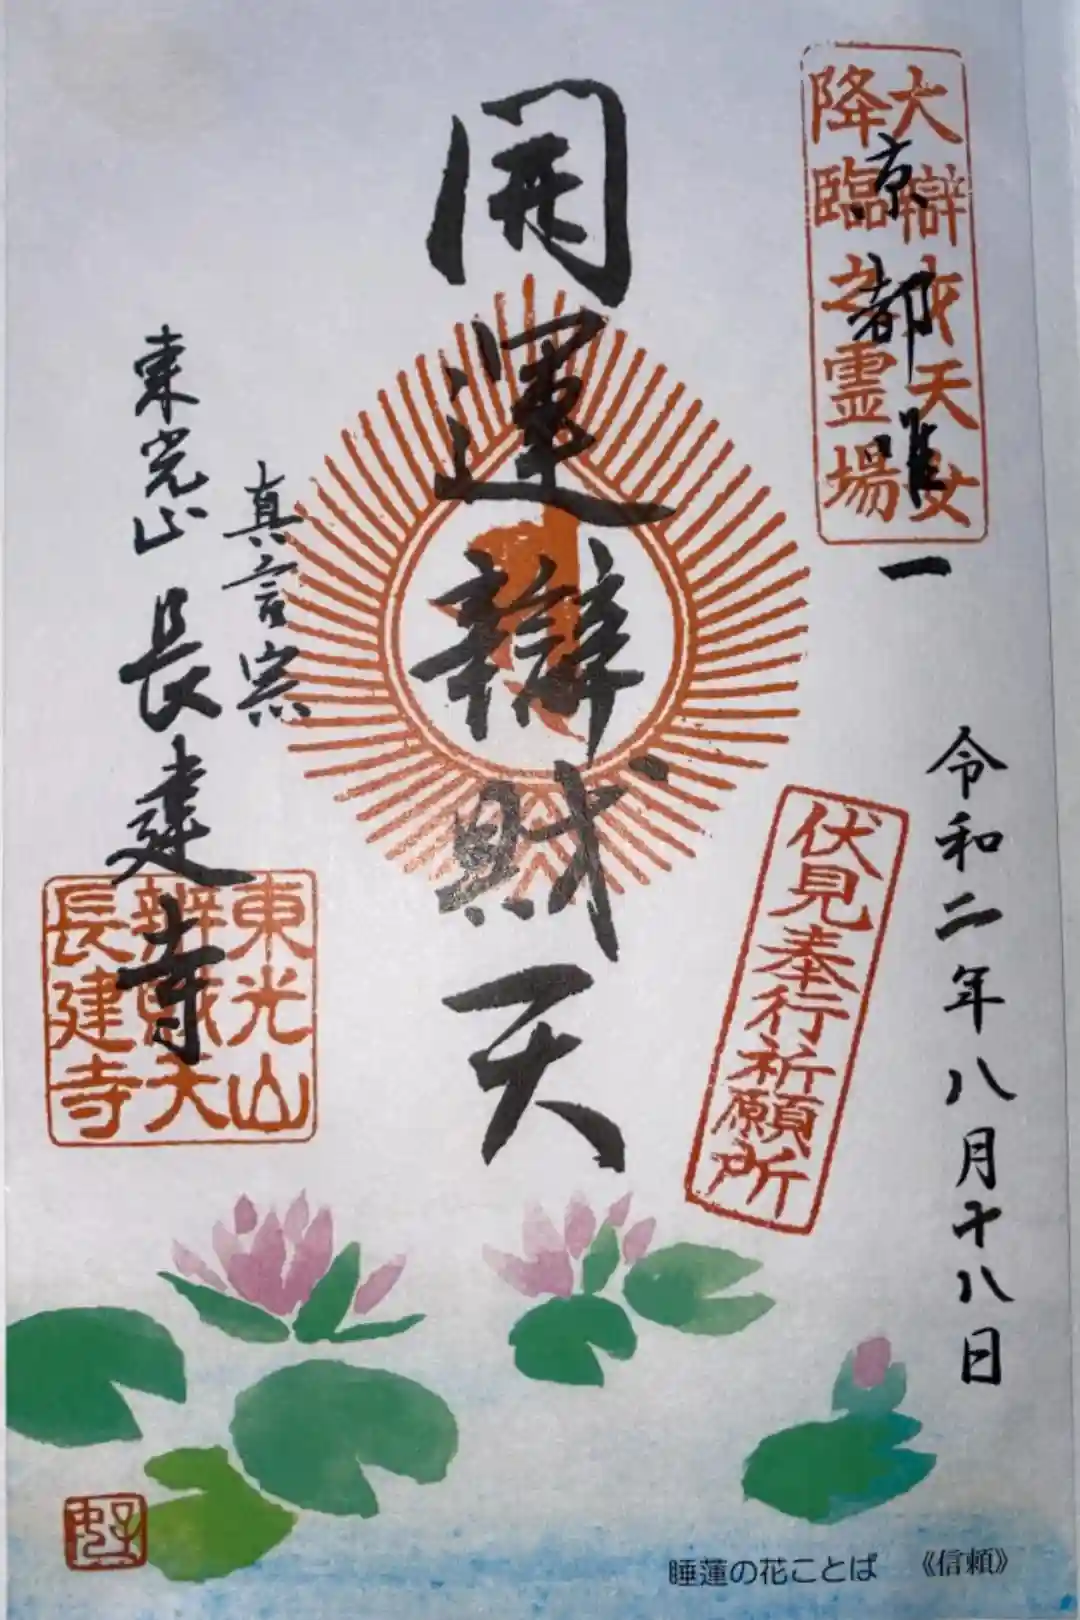 大辯才天女
降臨之霊場
京都唯一
令和二年八月十八日
伏見奉行祈願所
開運辯財天
真言宗
東光山長建寺
東光山
辨財天
長建寺
睡蓮の花ことば 《信頼》